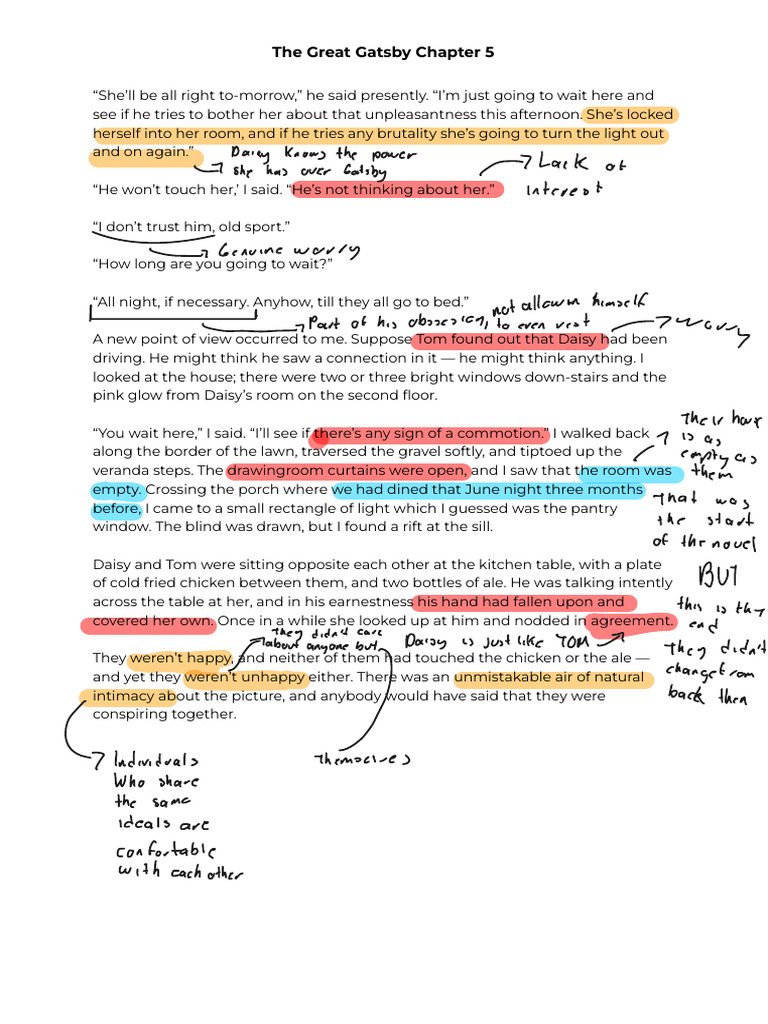 The Great Gatsby Chapter 5
“She’ll be all right to-morrow,” he said presently. “I’m just going to wait here and
see if he tries to bother her about that unpleasantness this afternoon. She’s locked
herself into her room, and if he tries any brutality she’s going to turn the light out
and on again.”
Daisy knows the power
she has over Gatsby
Lack of
interest
“He won’t touch her,’ I said. “He’s not thinking about her.”
“I don’t trust him, old sport.”
Genuine worry
“How long are you going to wait?”
“All night, if necessary. Anyhow, till they all go to bed.”
Part of his obsession, not allowin himself
to even rest
worry
A new point of view occurred to me. Suppose Tom found out that Daisy had been
driving. He might think he saw a connection in it — he might think anything. I
looked at the house; there were two or three bright windows down-stairs and the
pink glow from Daisy’s room on the second floor.
“You wait here,” I said. “I’ll see if there’s any sign of a commotion.” I walked back
along the border of the lawn, traversed the gravel softly, and tiptoed up the
veranda steps. The drawingroom curtains were open, and I saw that the room was
empty. Crossing the porch where we had dined that June night three months
before, I came to a small rectangle of light which I guessed was the pantry
window. The blind was drawn, but I found a rift at the sill.
Their
is as
empty as
them
That was
the start
of the novel
BUT
this is the
end
They didn't
change from
back then
Daisy and Tom were sitting opposite each other at the kitchen table, with a plate
of cold fried chicken between them, and two bottles of ale. He was talking intently
across the table at her, and in his earnestness his hand had fallen upon and
covered her own. Once in a while she looked up at him and nodded in agreement.
they didn't care
about anyone but
themselves
Daisy is just like TOM
They weren’t happy, and neither of them had touched the chicken or the ale —
and yet they weren’t unhappy either. There was an unmistakable air of natural
intimacy about the picture, and anybody would have said that they were
conspiring together.
Individuals
Who share
the same
ideals are
confortable
with each other